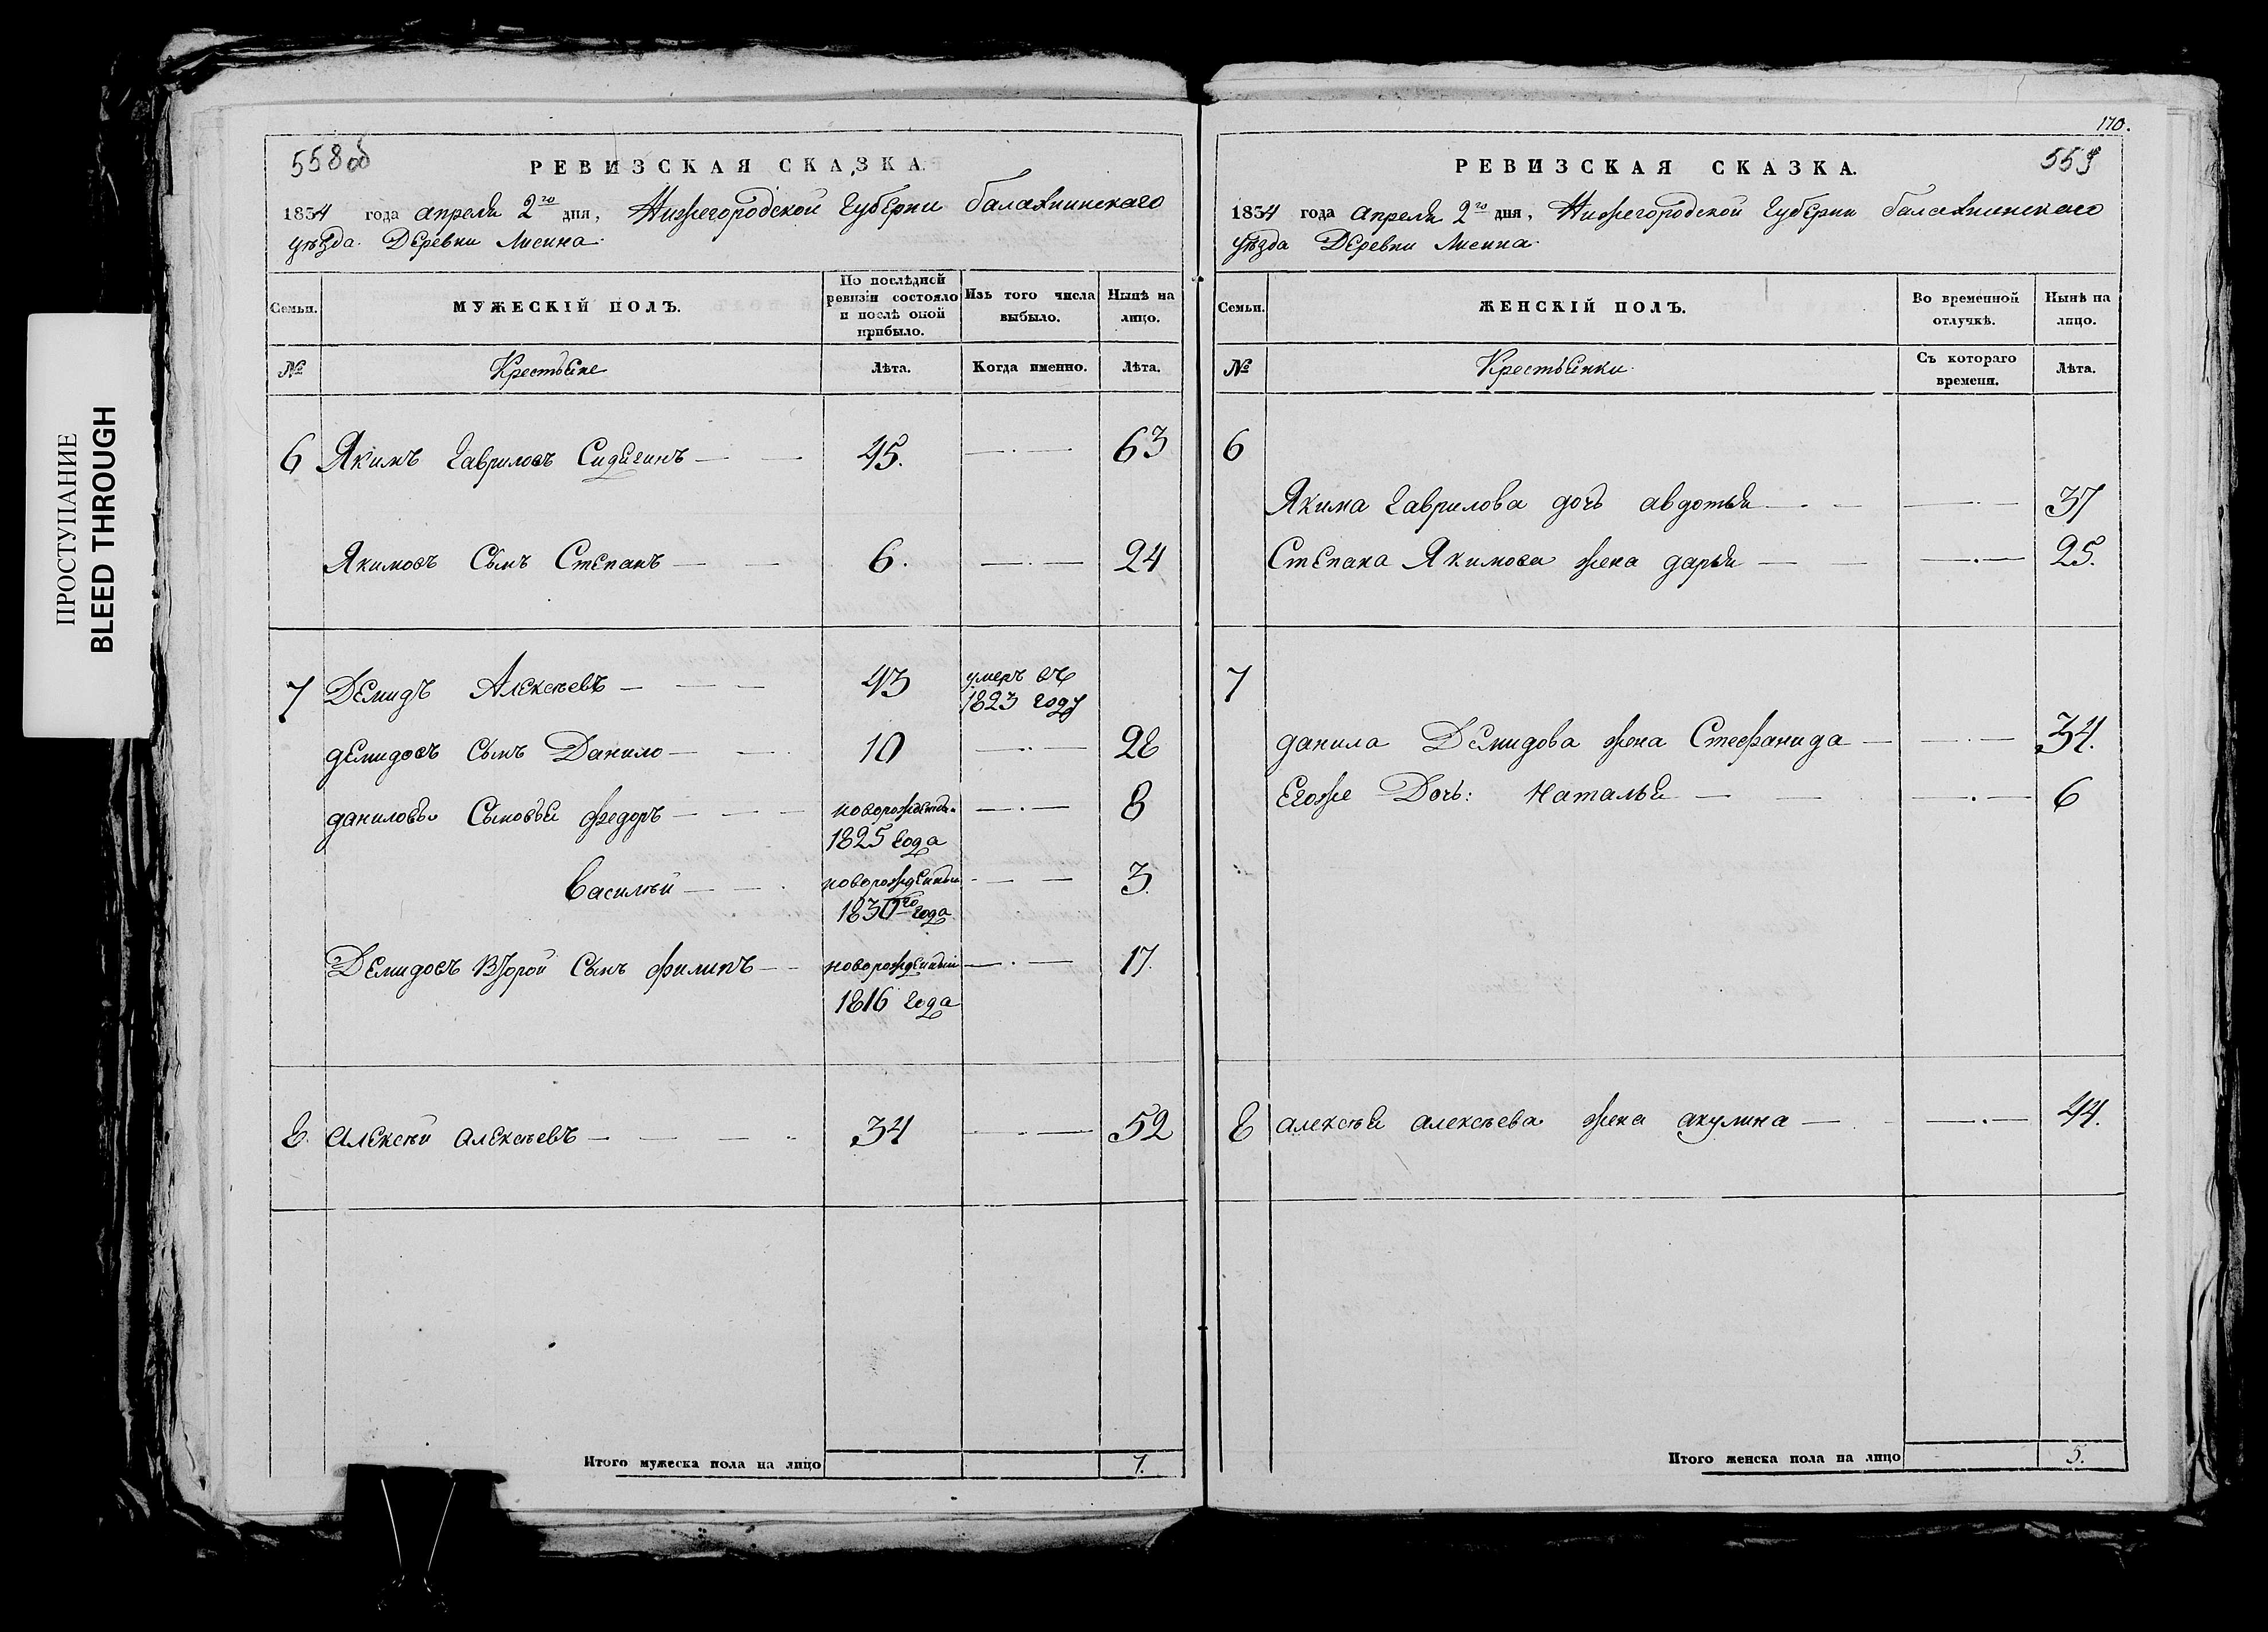 ПРОСТУПАНИЕ
BLEED THROUGH
558об
РЕВИЗСКАЯ СКАЗКА.
1834 года апреля 2го дня, Нижегородской Губернии балахнинскаго
уѣзда Деревни Лисина
Семьи. МУЖЕСКІЙ ПОЛЪ. По послѣдней ревизіи состояло и послѣ оной прибыло. Изъ того числа выбыло. Нынѣ на лицо.
№ Крестьяне Лѣта. Когда именно. Лѣта.
6 Якимъ Гавриловъ 45. 63
Якимовъ Сынъ Степанъ 6. 24
7 Демидъ Алексѣевъ 43 умеръ въ 1823 году
демидовъ Сынъ Данило 10 28
даниловы Сыновья федоръ новорожденны 1825 года 8
Василѣй новорожденный 1830го года 3.
Демидовъ Второй Сынъ филипъ новорожденный 1816 года 17.
8. алексѣй алексѣевъ 34 52
Итого мужеска пола на лицо 7.
170.
559
РЕВИЗСКАЯ СКАЗКА.
1834 года апреля 2го дня, Нижегородской Губернии балахнинскаго
уѣзда Деревни Лисина
Семьи. ЖЕНСКІЙ ПОЛЪ. Во временной отлучкѣ. Нынѣ на лицо.
№ Крестьянки Съ котораго времени. Лѣта.
6
Якима Гаврилова дочь авдотья 37
Степана Якимова жена дарья 25.
7
данила Демидова жена Стефанида 34.
Егоже Дочь: Наталья 6
8 алексѣя алексѣева жена акулина 44.
Итого женска пола на лицо 5.